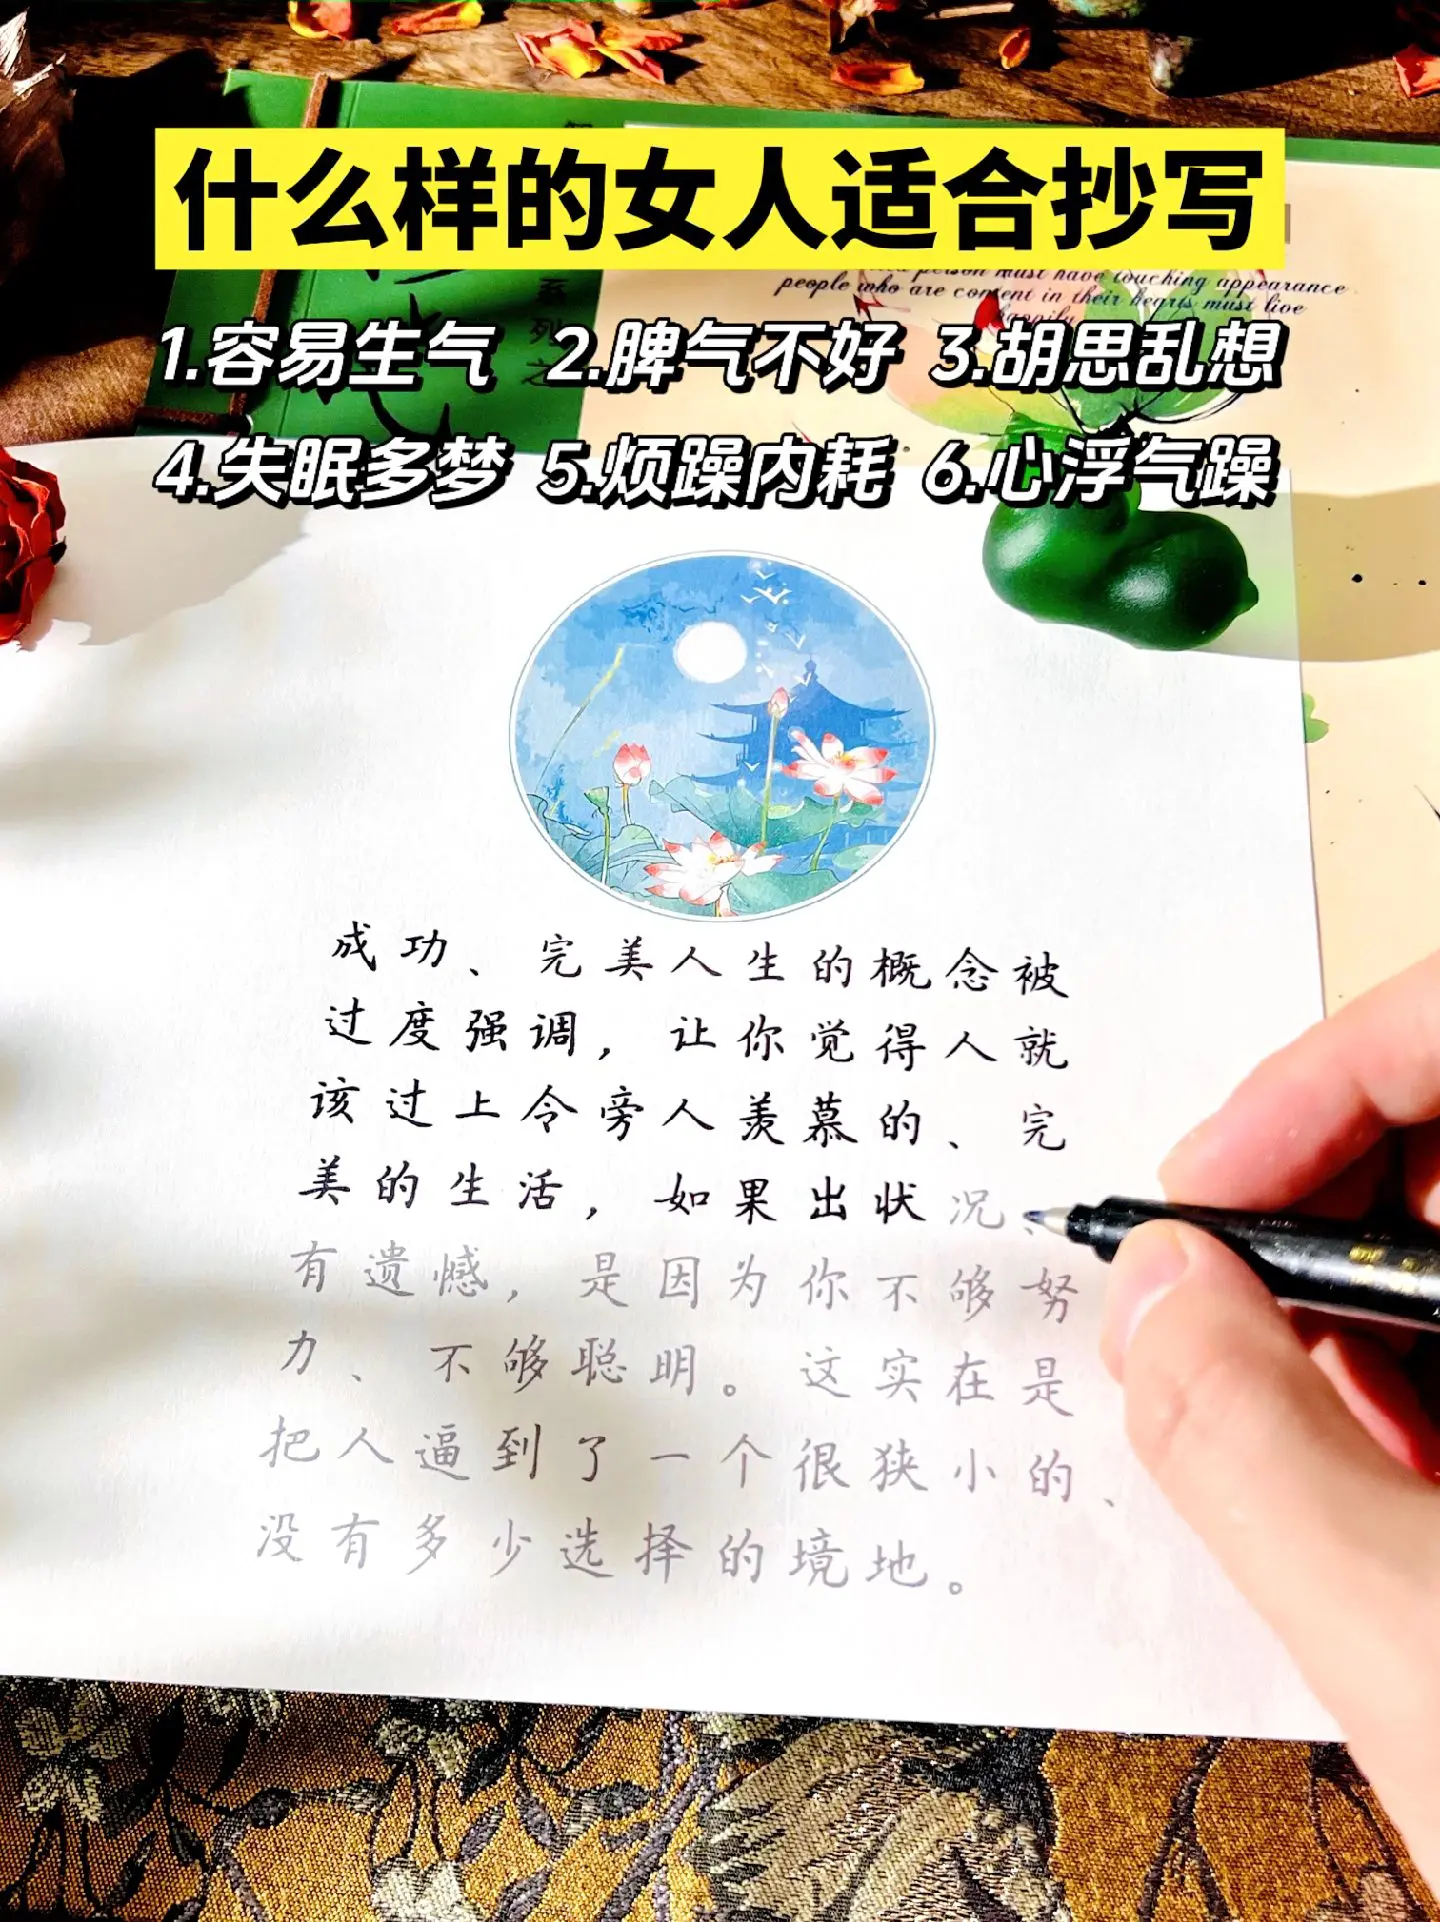 什么样的女人适合抄写
person must have touching appearance
people who are content in their hearts must live
happily
系列之
1.容易生气 2.脾气不好 3.胡思乱想
4.失眠多梦 5.烦躁内耗 6.心浮气躁
成功、完美人生的概念被
过度强调，让你觉得人就
该过上令旁人羡慕的、完
美的生活，如果出状况、
有遗憾，是因为你不够努
力、不够聪明。这实在是
把人逼到了一个很狭小的、
没有多少选择的境地。